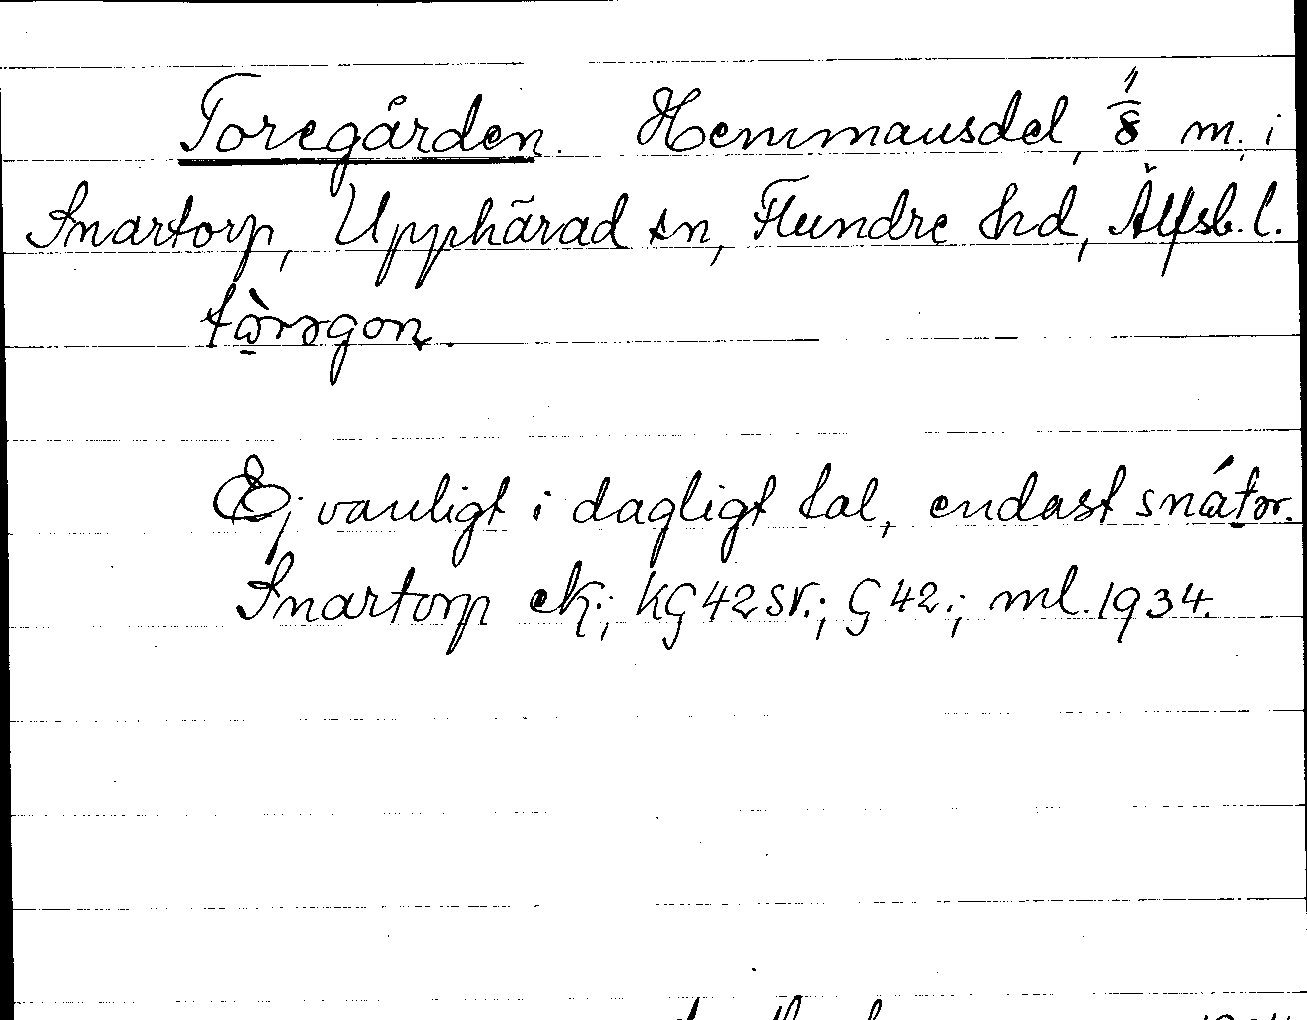 Toregården. Hemmansdel, 1/8 m. i
Snartorp, Upphärad sn, Flundre hd, Älfsb. l.
tὰ̱rəgon.
Ej vanligt i dagligt tal, endast snátər.
Snartorp ek.; KG 42 SV.; G 42.; ml. 1934.